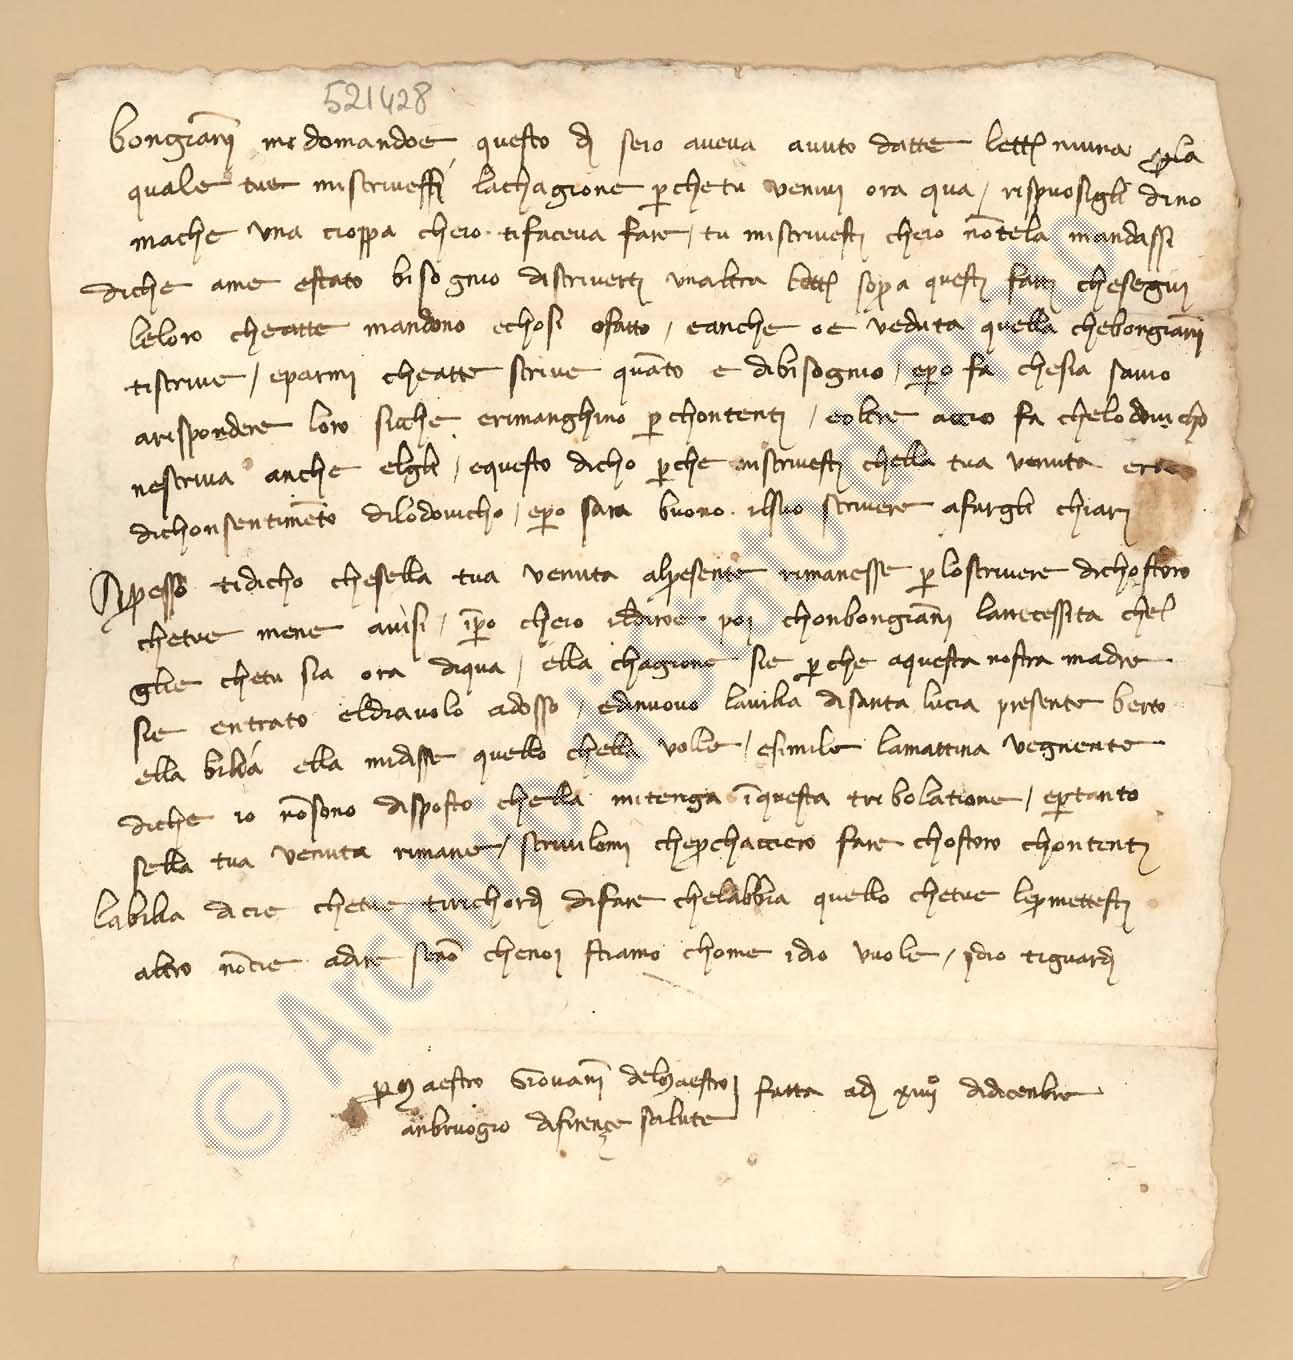 521428
bongianni me domandoe questo di sero aveva avuto datte lettera niuna per la
quale tue mi scrivessi la chagione perche tu venivi ora qua / rispuosigli di no
mache una cioppa cheio ti faceva fare / tu mi scrivesti cheio nonte la mandassi
diche ame estato bisognio discriverti unaltra lettera sopra questi fatti chesegui
beloro cheatte mandono echosi ofatto / eanche oe veduta quella chebongianni
tiscrive / eparmi cheatte scrive quanto e dibisognio / epero fa chesia savio
arispondere loro sicche erimanghino per chontenti / eoltre accio fa chelodovicho
nescriva anche elgli / equesto dicho perche mi scrivesti chella tua venuta era
dichonsentimento dilodovicho / epero sara buono ilsuo scrivere afargli chiari
Apresso tidicho chesella tua venuta alpresente rimanesse per loscrivere dichostoro
chetue mene avisi / impero cheio ildiroe poi chonbongianni lanecessita chel
glie chetu sia ora diqua / ella chagione sie perche aquesta nostra madre
sie entrato eldiavolo adosso / edinuovo lavilia disanta lucia presente berto
ella bilia ella midisse quello chella volle / esimile lamattina vegnente
diche io nonsono disposto chella mitenga inquesta tribolatione / epertanto
sella tua venuta rimane / scrivilomi cheprochaccero fare chostoro chontenti
labilia dicie chetue tirichordi difare chelabbia quello chetue lepromettesti
altro noncie adire senon chenoi stiamo chome idio vuole / idio tiguardi
per Maestro Giovanni delMaestro
anbruogio difirençe salute
fatta adi xviiiº didicenbre
© Archivio di Stato di Prato